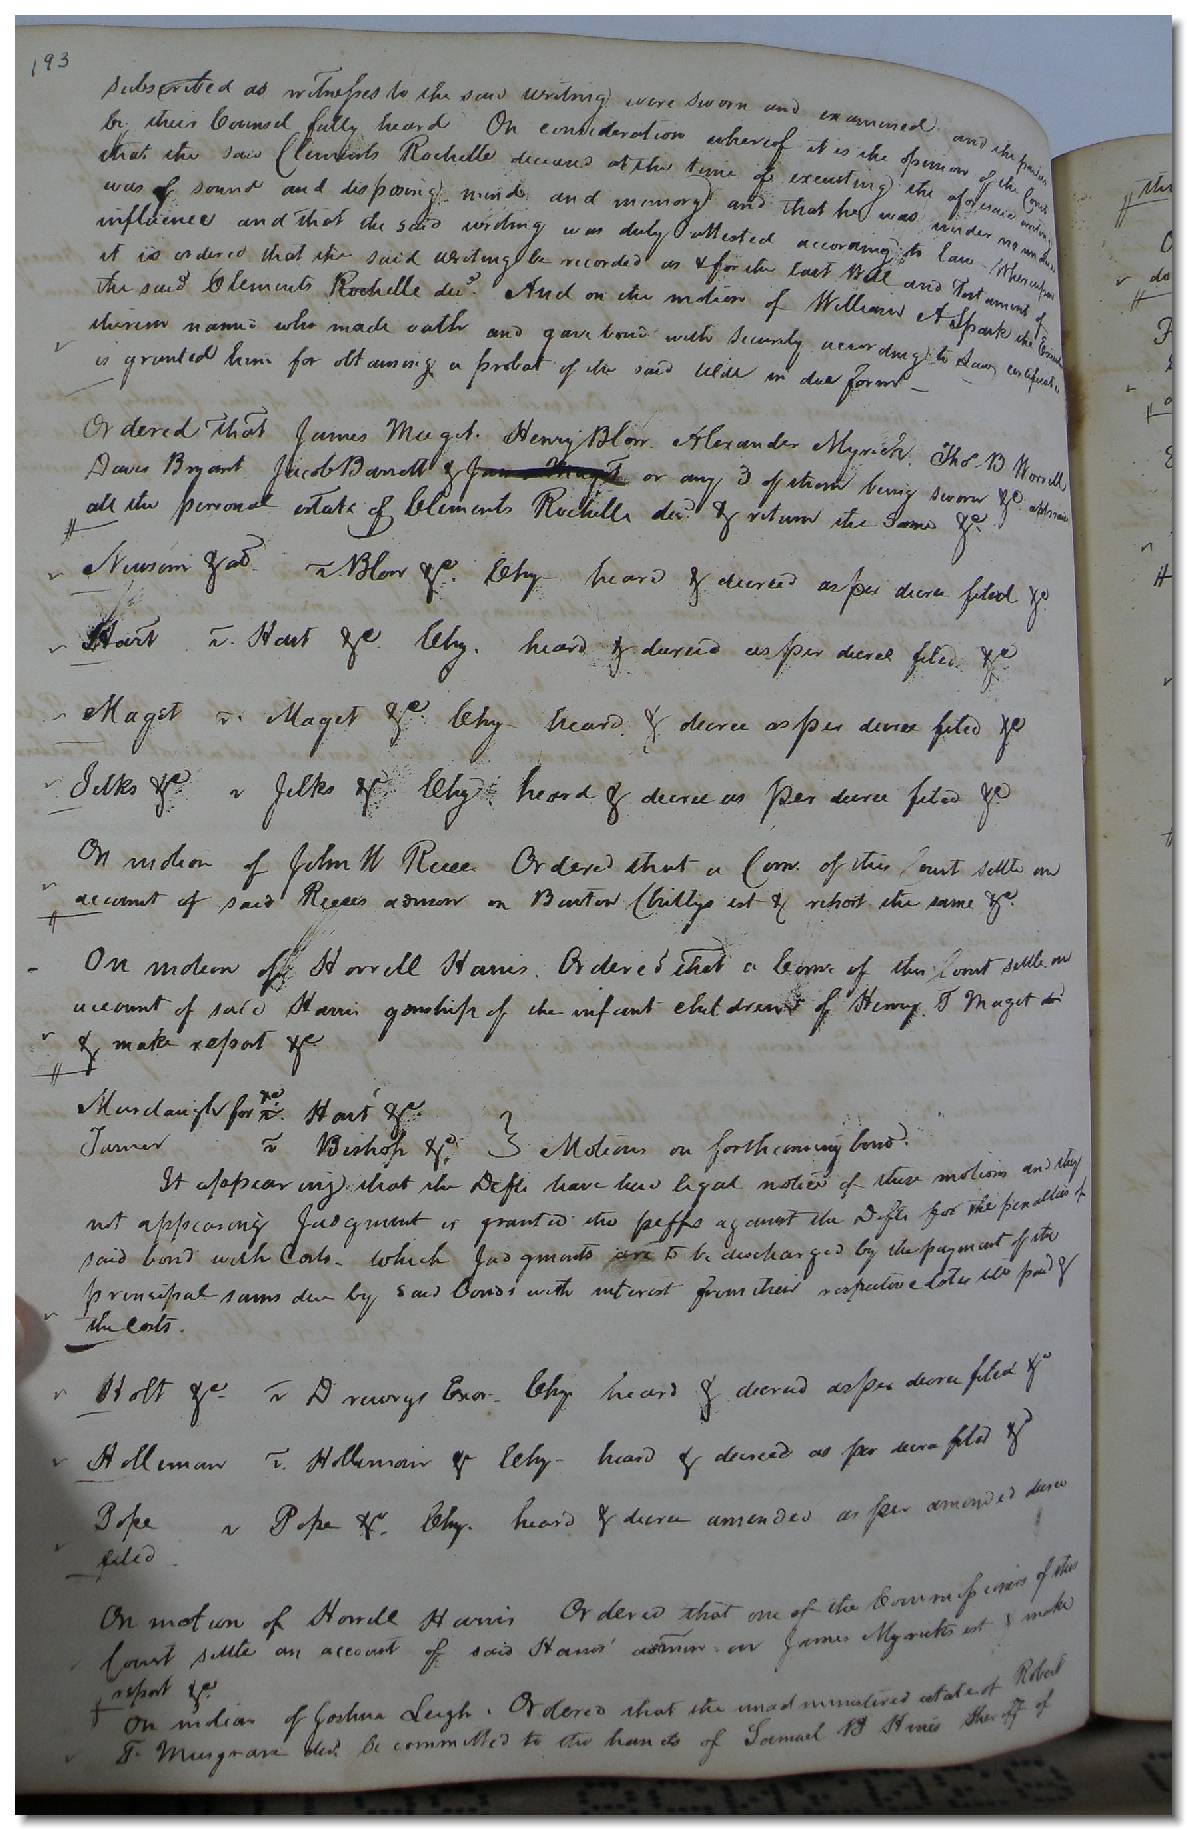 193
subscribed as witnesses to the said writing were sworn and examined and the parties
by their Counsel fully heard On consideration whereof it is the opinion of the Court
that the said Clements Rochelle deceased at the time of executing the aforesaid writing
was of sound and disposing mind and memory and that he was under no undue
influence and that the said writing was duly attested according to law Whereupon
it is ordered that the said writing be recorded as & for the last Will and Testament of
the said Clements Rochelle decd. And on the motion of William A Spark the Executor
therein named who made oath and gave bond with security according to Law, certificate
is granted him for obtaining a probat of the said Will in due form —
Ordered that James Maget. Henry Blow. Alexander Myrick. Thos. B Worrell
Davis Bryant Jacob Barrett & or any 3 of them being sworn &c. appraise
all the personal estate of Clements Rochelle decd. & return the same &c.
Newsom &al. v Blow &c. Chy heard & decreed as per decree filed &c
Hart v. Hart &c. Chy. heard & decreed as per decree filed &c
Maget v. Maget &c. Chy heard. & decree as per decree filed &c
Jelks &c. v Jelks &c. Chy. heard & decree as per decree filed &c
On motion of John W Reese Ordered that a Com. of this Court settle an
account of said Reeses admon on Burton est & report the same &c.
On motion of Horrell Harris. Ordered that a Comr. of this Court settle an
account of said Harris gdnship of the infant children of Henry T Maget
& make report &c
Murdaugh for &c. v. Hart &c.
Turner v Bishop &c. } Motions on forthcoming bond.
It appearing that the Defts have had legal notice of these motions and they
not appearing Judgment is granted the peffs against the Defts for the penalties of
said bond with Costs. which Judgments are to be discharged by the payment of the
principal sums due by said bonds with interest from their respective dates till paid &
the Costs.
Holt &c. v Drewrys Exor. Chy heard & decreed as per decree filed &c
Holleman v. Holleman & Chy heard & decreed as per decree filed &c
Pope v Pope &c. Chy. heard & decree amended as per amended decree
filed
On motion of Horrell Harris Ordered that one of the Commissioners of this
Court settle an account of said Harris' admon. on James Myricks est & make
report &c.
On motion of Joshua Leigh. Ordered that the unadministered estate of Robert
T. Musgrave decd. be committed to the hands of Samuel B Hines Sheriff of